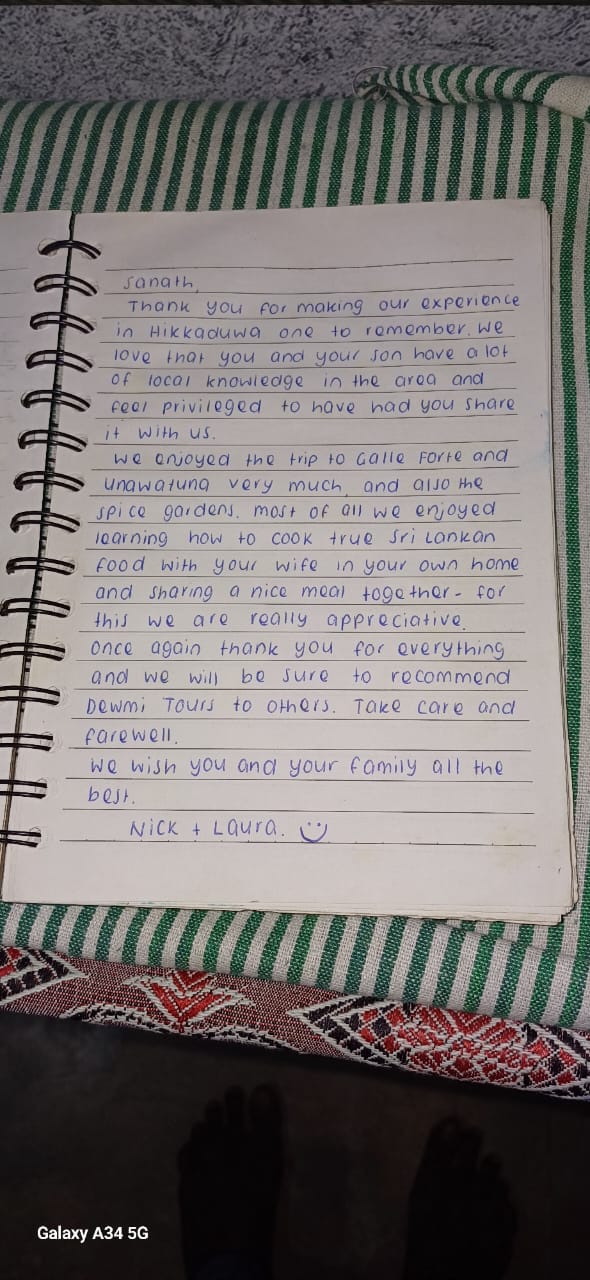 Sanath,
Thank you for making our experience
in Hikkaduwa one to remember. We
love that you and your son have a lot
of local knowledge in the area and
feel privileged to have had you share
it with us.
We enjoyed the trip to Galle Forte and
Unawatuna very much, and also the
spice gardens. Most of all we enjoyed
learning how to cook true Sri Lankan
food with your wife in your own home
and sharing a nice meal together - for
this we are really appreciative.
Once again thank you for everything
and we will be sure to recommend
Dewmi Tours to others. Take care and
farewell.
We wish you and your family all the
best.
Nick + Laura. :)
Galaxy A34 5G